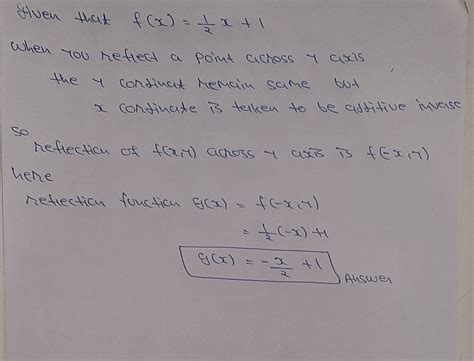 Given that f(x) = 1/2 x + 1
when you reflect a point across y axis
the y cordinat remain same but
x cordinate is taken to be additive inverse
so
reflection of f(x,y) across y axis is f(-x,y)
here
reflection function g(x) = f(-x,y)
= 1/2 (-x) + 1
g(x) = -x/2 + 1 Answer